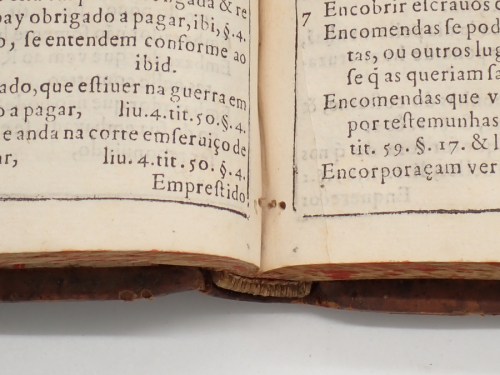 gada & re
pay obrigado a pagar, ibi, §. 4.
o, ſe entendem conforme ao
ibid.
ado, que eſtiuer na guerra em
o a pagar, liu. 4. tit. 50. §. 4.
e anda na corte em ſeruiço de
ar, liu. 4. tit. 50. §. 4.
Empreſtido
7 Encobrir eſcrauos
Encomendas ſe pod
tas, ou outros lug
ſe q̃ as queriam ſa
Encomendas que v
por teſtemunhas
tit. 59. §. 17. & l
Encorporaçam ver